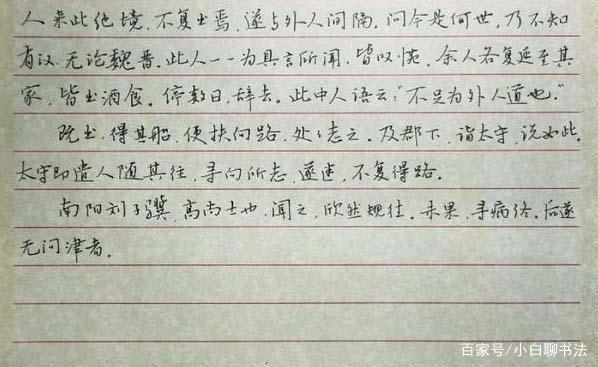 人来此绝境,不复出焉,遂与外人间隔。问今是何世,乃不知
有汉,无论魏晋。此人一一为具言所闻,皆叹惋。余人各复延至其
家,皆出酒食。停数日,辞去。此中人语云:“不足为外人道也。”
既出,得其船,便扶向路,处处志之。及郡下,诣太守,说如此。
太守即遣人随其往,寻向所志,遂迷,不复得路。
南阳刘子骥,高尚士也,闻之,欣然规往。未果,寻病终。后遂
无问津者。
百家号/小白聊书法